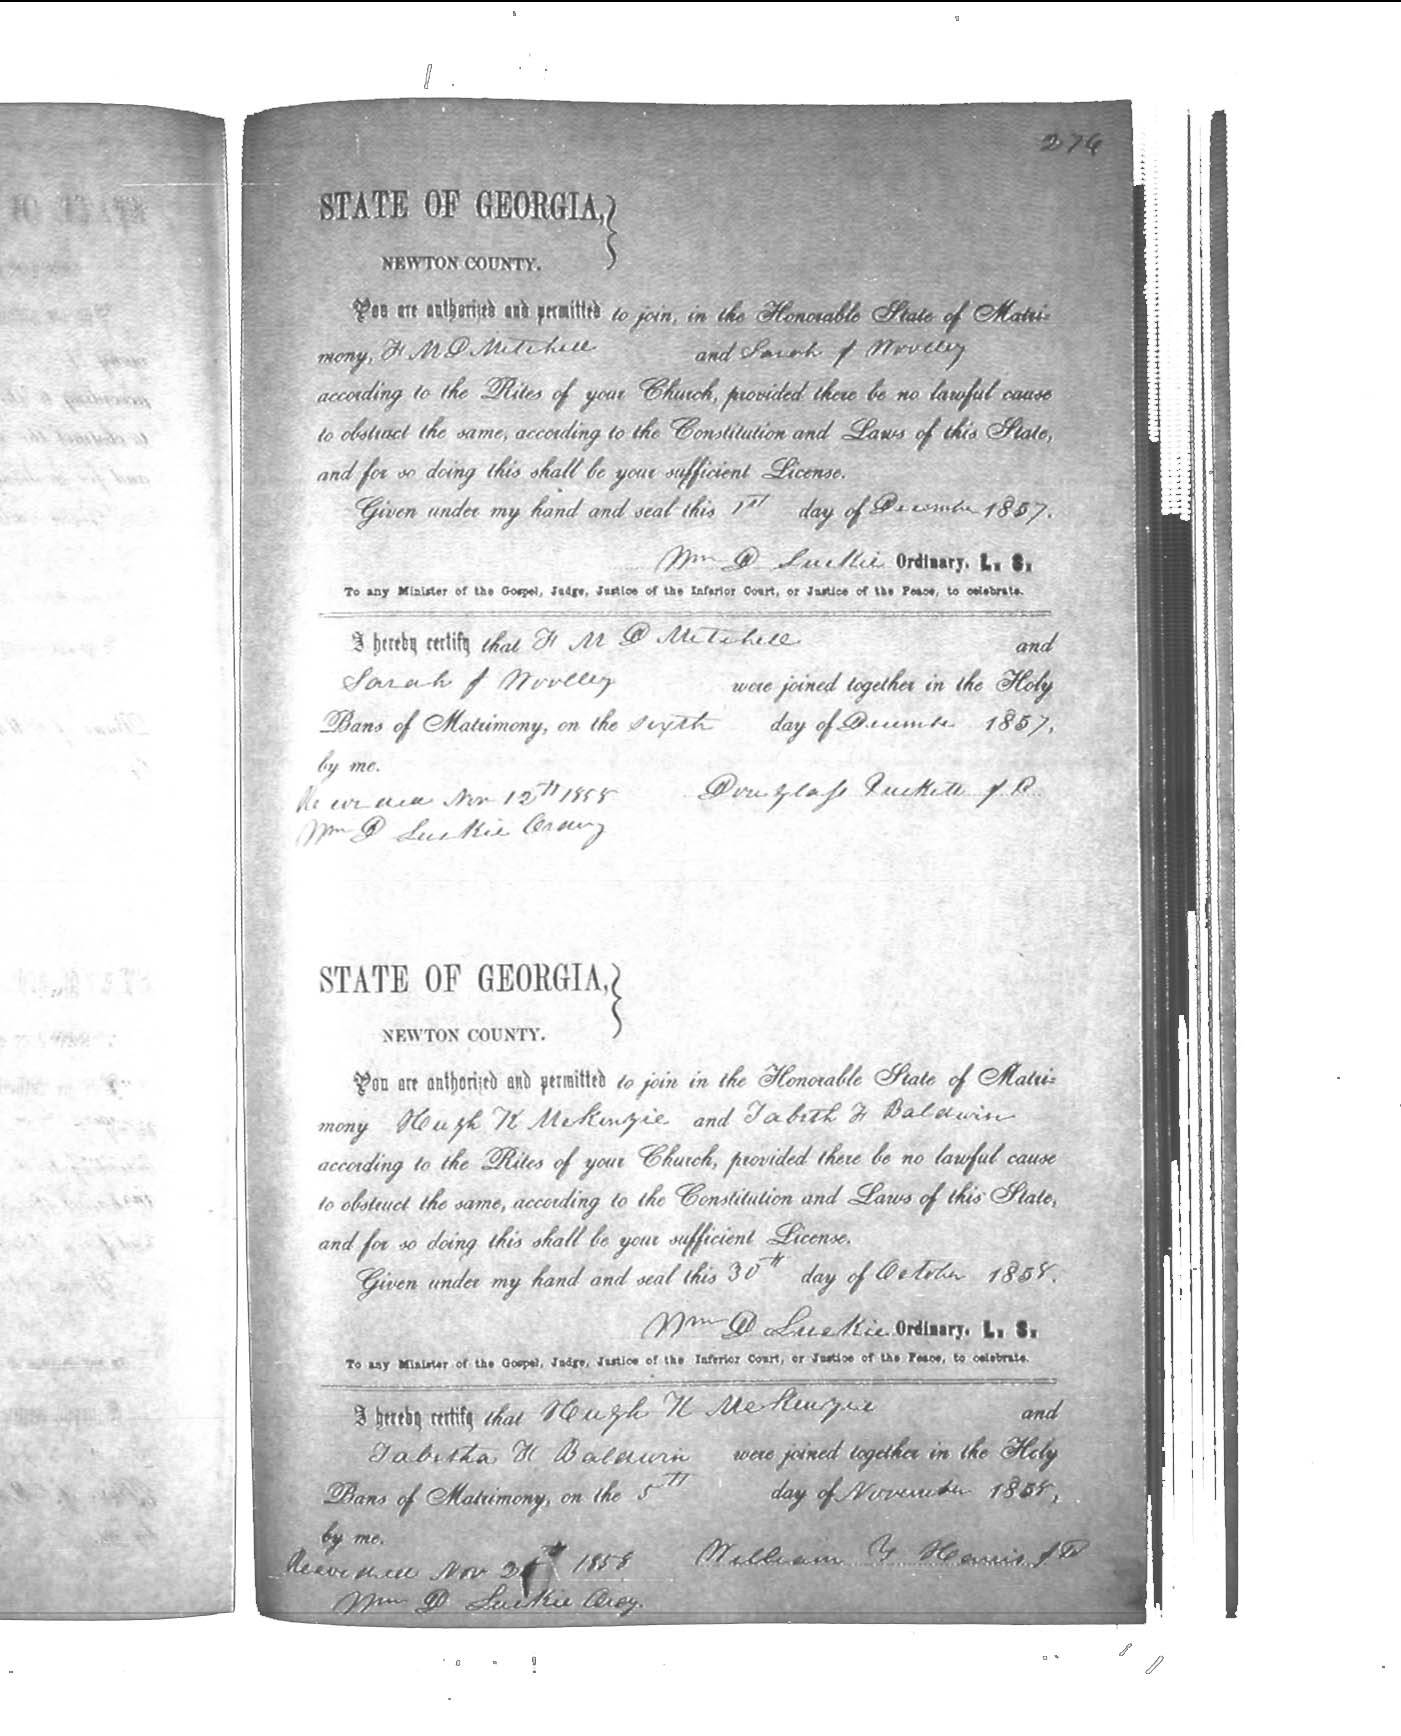 276
STATE OF GEORGIA,
NEWTON COUNTY.
You are authorized and permitted to join, in the Honorable State of Matri-
mony, F M D Mitchell and Sarah J Woolley
according to the Rites of your Church, provided there be no lawful cause
to obstruct the same, according to the Constitution and Laws of this State,
and for so doing this shall be your sufficient License.
Given under my hand and seal this 1st day of December 1857.
Wm D Luckie Ordinary, L. S.
To any Minister of the Gospel, Judge, Justice of the Inferior Court, or Justice of the Peace, to celebrate.
I hereby certify that F M D Mitchell and
Sarah J Woolley were joined together in the Holy
Bans of Matrimony, on the sixth day of December 1857,
by me.
Recorded Nov 12th 1858 Douglass J P
Wm D Luckie Ordny
STATE OF GEORGIA,
NEWTON COUNTY.
You are authorized and permitted to join in the Honorable State of Matri-
mony Hugh K McKenzie and Tabith F Baldwin
according to the Rites of your Church, provided there be no lawful cause
to obstruct the same, according to the Constitution and Laws of this State,
and for so doing this shall be your sufficient License.
Given under my hand and seal this 30th day of October 1858.
Wm D Luckie Ordinary, L. S.
To any Minister of the Gospel, Judge, Justice of the Inferior Court, or Justice of the Peace, to celebrate.
I hereby certify that Hugh K McKenzie and
Tabitha F Baldwin were joined together in the Holy
Bans of Matrimony, on the 5th day of November 1858,
by me.
Recorded Nov 1858 William Harris J P
Wm D Luckie Ordy.